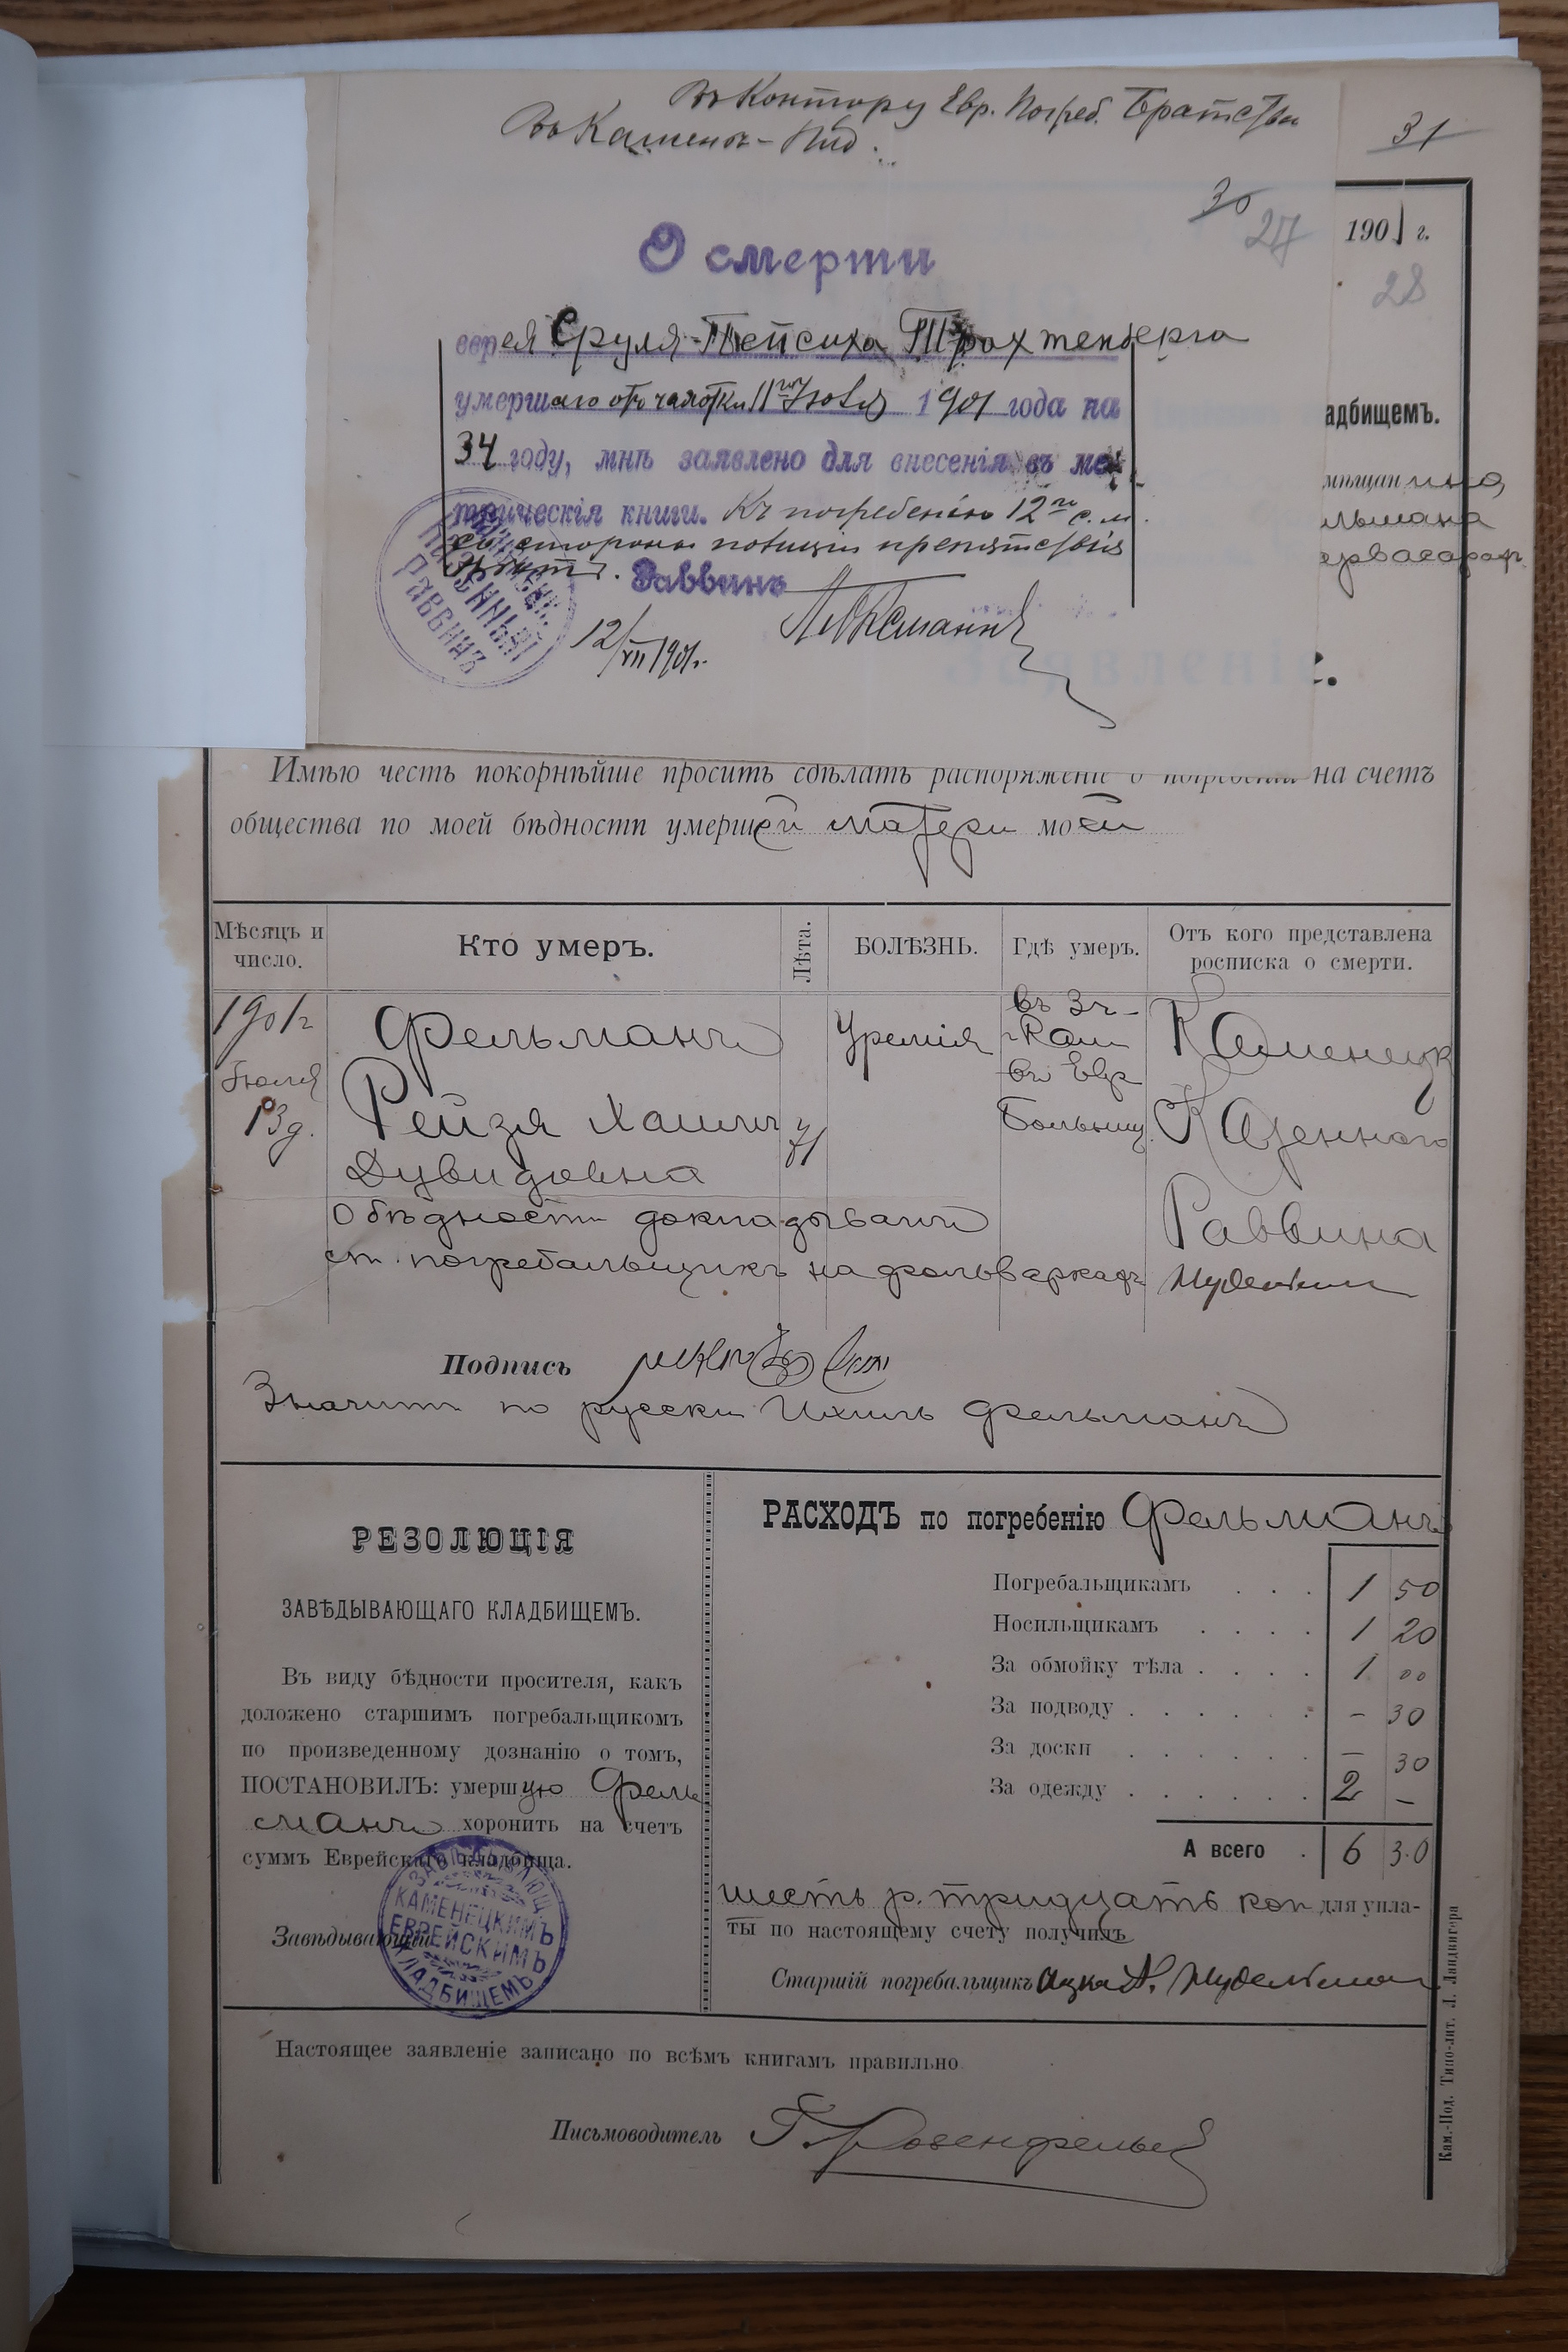 Въ Контору Евр. Погреб. Братства
Въ Каменц-Под.
31
30
27
О смерти
1901 г.
28
еврея Сруля-Пейсиха Трахтенберга
умершаго отъ чахотки 11го Іюля 1901 года на
адбищемъ.
34 году, мнѣ заявлено для внесенія въ ме-
мѣщанина
трическія книги. Къ погребенію 12го с. м.
льмана
со стороны полиціи препятствія
нѣтъ. Раввинъ
Казенный Раввинъ
12/VII 1901 г.
Имѣю честь покорнѣйше просить сдѣлать распоряженіе о погребеніи на счетъ
общества по моей бѣдности умершей матери моей
Мѣсяцъ и число.
Кто умеръ.
Лѣта.
БОЛѢЗНЬ.
Гдѣ умеръ.
Отъ кого представлена росписка о смерти.
1901 г
Іюля
13 д.
Фельманъ
Рейзя
Дувидовна
71
Уремія
въ Евр
Больниц.
Каменецк
Казеннаго
Раввина
О бѣдности докладывалъ
ст. погребальщикъ на фольваркахъ
Подпись
Значитъ по русски Ихиль Фельманъ
РЕЗОЛЮЦІЯ
ЗАВѢДЫВАЮЩАГО КЛАДБИЩЕМЪ.
Въ виду бѣдности просителя, какъ
доложено старшимъ погребальщикомъ
по произведенному дознанію о томъ,
ПОСТАНОВИЛЪ: умершую Фель
манъ хоронить на счетъ
суммъ Еврейскаго кладбища.
Завѣдывающій
ЗАВѢДЫВАЮЩ. КАМЕНЕЦКИМЪ ЕВРЕЙСКИМЪ КЛАДБИЩЕМЪ
РАСХОДЪ по погребенію Фельманъ
Погребальщикамъ . . . 1 50
Носильщикамъ . . . . 1 20
За обмойку тѣла . . . . 1 00
За подводу . . . . . . – 30
За доски . . . . . . – 30
За одежду . . . . . . 2 –
А всего . 6 30
шесть р. тридцать коп для упла-
ты по настоящему счету получилъ
Старшій погребальщикъ
Настоящее заявленіе записано по всѣмъ книгамъ правильно
Письмоводитель Г. Розенфельд
Кам.-Под. Типо-лит. Л. Ландвигера